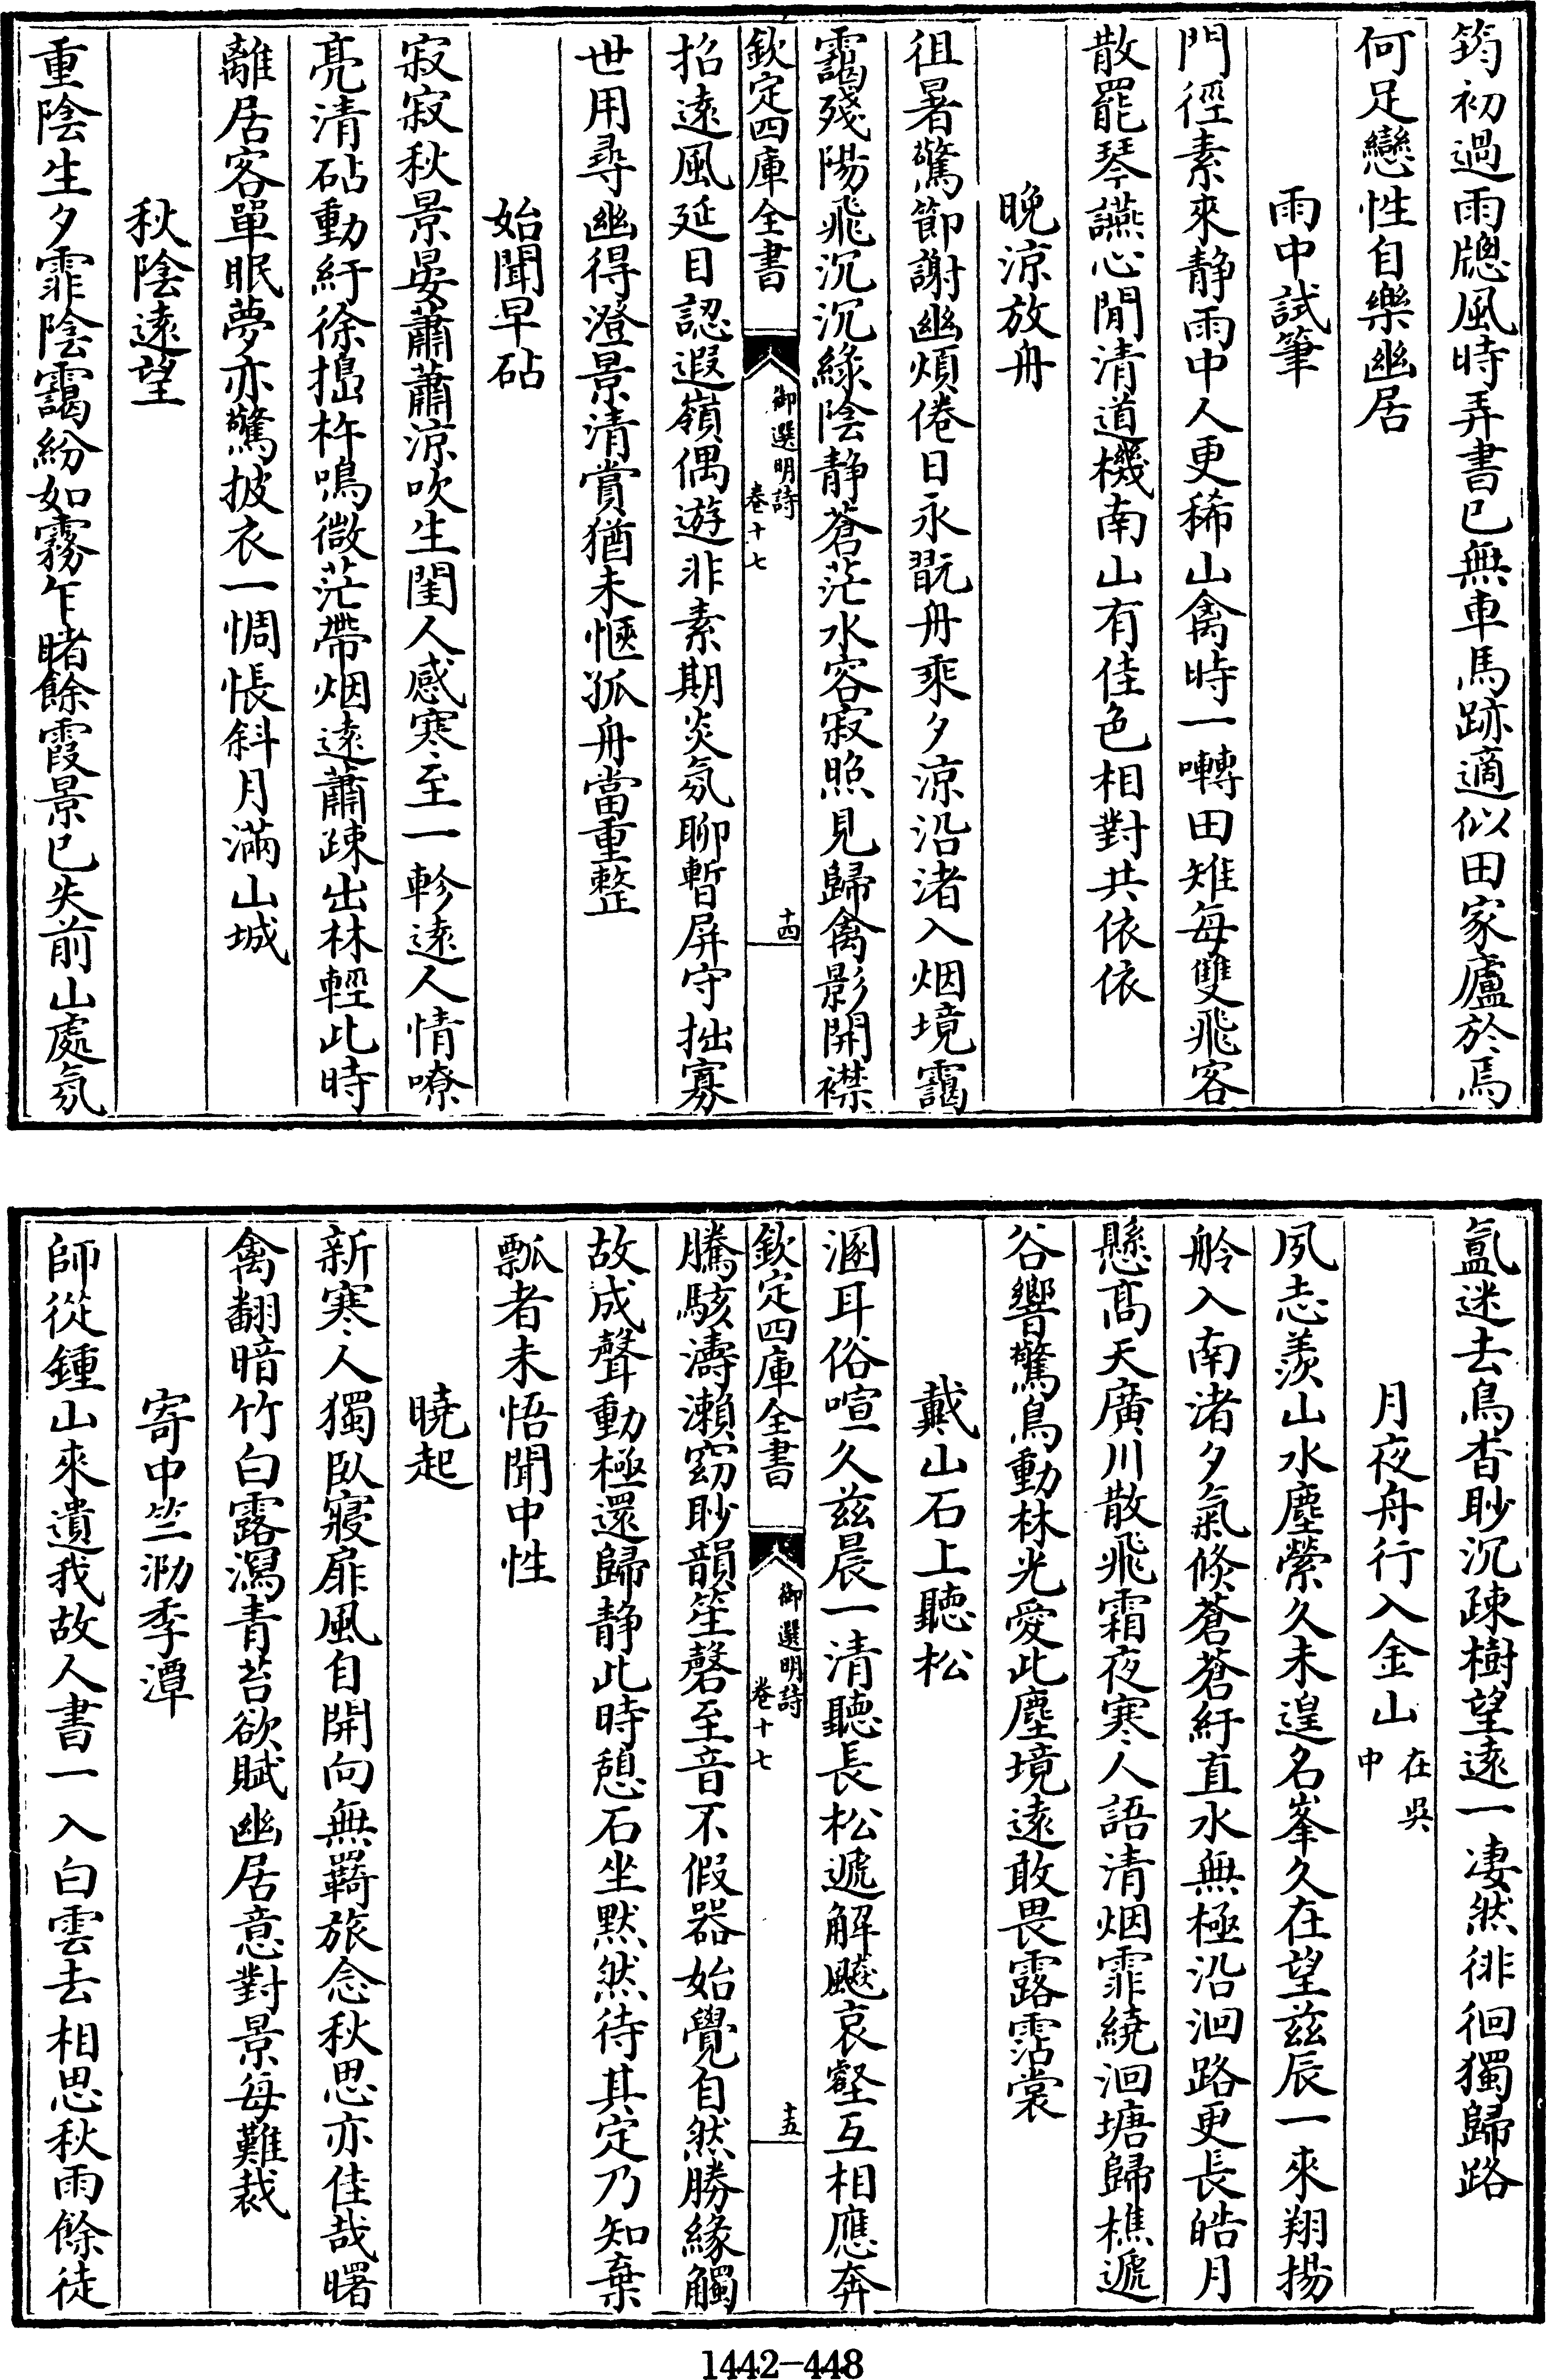 筠初過雨牕風時弄書已無車馬跡適似田家廬於焉
何足戀性自樂幽居
雨中試筆
門徑素來静雨中人更稀山禽時一囀田雉每雙飛客
散罷琴讌心閒清道機南山有佳色相對共依依
晚涼放舟
徂暑驚節謝幽煩倦日永翫舟乘夕涼沿渚入烟境靄
靄殘陽飛沉沉綠陰静蒼茫水容寂照見歸禽影開襟
欽定四庫全書
御選明詩
卷十七
十四
招遠風延目認遐嶺偶遊非素期炎氛聊暫屏守拙寡
世用尋幽得澄景清賞猶未愜孤舟當重整
始聞早砧
寂寂秋景晏蕭蕭涼吹生閨人感寒至一軫遠人情嘹
亮清砧動紆徐搗杵鳴微茫帶烟遠蕭疎出林輕此時
離居客單眠夢亦驚披衣一惆悵斜月滿山城
秋陰遠望
重陰生夕霏陰靄紛如霧乍睹餘霞景已失前山處氛
氳迷去鳥杳眇沉疎樹望遠一凄然徘徊獨歸路
月夜舟行入金山在吳
中
夙志羨山水塵縈久未遑名峯久在望兹辰一來翔揚
舲入南渚夕氣倐蒼蒼紆直水無極沿洄路更長皓月
懸高天廣川散飛霜夜寒人語清烟霏繞洄塘歸樵遞
谷響驚鳥動林光愛此塵境遠敢畏露霑裳
戴山石上聽松
溷耳俗喧久兹晨一清聽長松遞解飈哀壑互相應奔
騰駭濤瀨窈眇韻笙磬至音不假器始覺自然勝緣觸
欽定四庫全書
御選明詩
卷十七
十五
故成聲動極還歸静此時憩石坐默然待其定乃知棄
瓢者未悟聞中性
曉起
新寒人獨臥寢扉風自開向無羇旅念秋思亦佳哉曙
禽翻暗竹白露瀉青苔欲賦幽居意對景每難裁
寄中竺泐季潭
師從鍾山來遺我故人書一入白雲去相思秋雨餘徒
1442-448